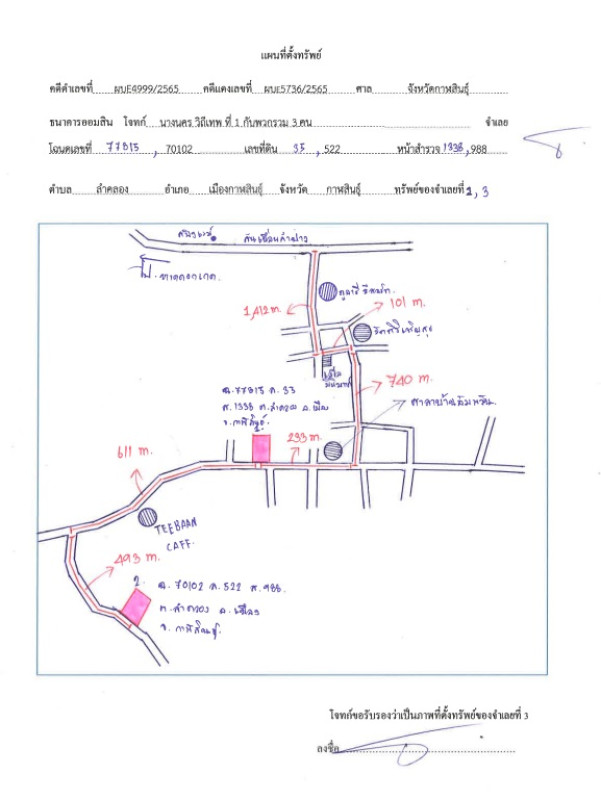 แผนที่ตั้งทรัพย์
คดีดำเลขที่ ผบE4999/2565 คดีแดงเลขที่ ผบE5736/2565 ศาล จังหวัดกาฬสินธุ์
ธนาคารออมสิน โจทก์ นางนคร วิถีเทพ ที่ 1 กับพวกรวม 3 คน จำเลย
โฉนดเลขที่ 77815, 70102 เลขที่ดิน 33, 522 หน้าสำรวจ 1338, 988
ตำบล ลำคลอง อำเภอ เมืองกาฬสินธุ์ จังหวัด กาฬสินธุ์ ทรัพย์ของจำเลยที่ 2, 3
1,412 m.
101 m.
740 m.
ฉ.77815 ด. 33
ส. 1338 ต. ลำคลอง อ. เมือง
จ. กาฬสินธุ์
233 m.
611 m.
TEEBAAN
CAFF.
493 m.
2. ฉ. 70102 ด. 522 ส. 988
ต. ลำคลอง อ. เมือง
จ. กาฬสินธุ์
โจทก์ขอรับรองว่าเป็นภาพที่ตั้งทรัพย์ของจำเลยที่ 3
ลงชื่อ